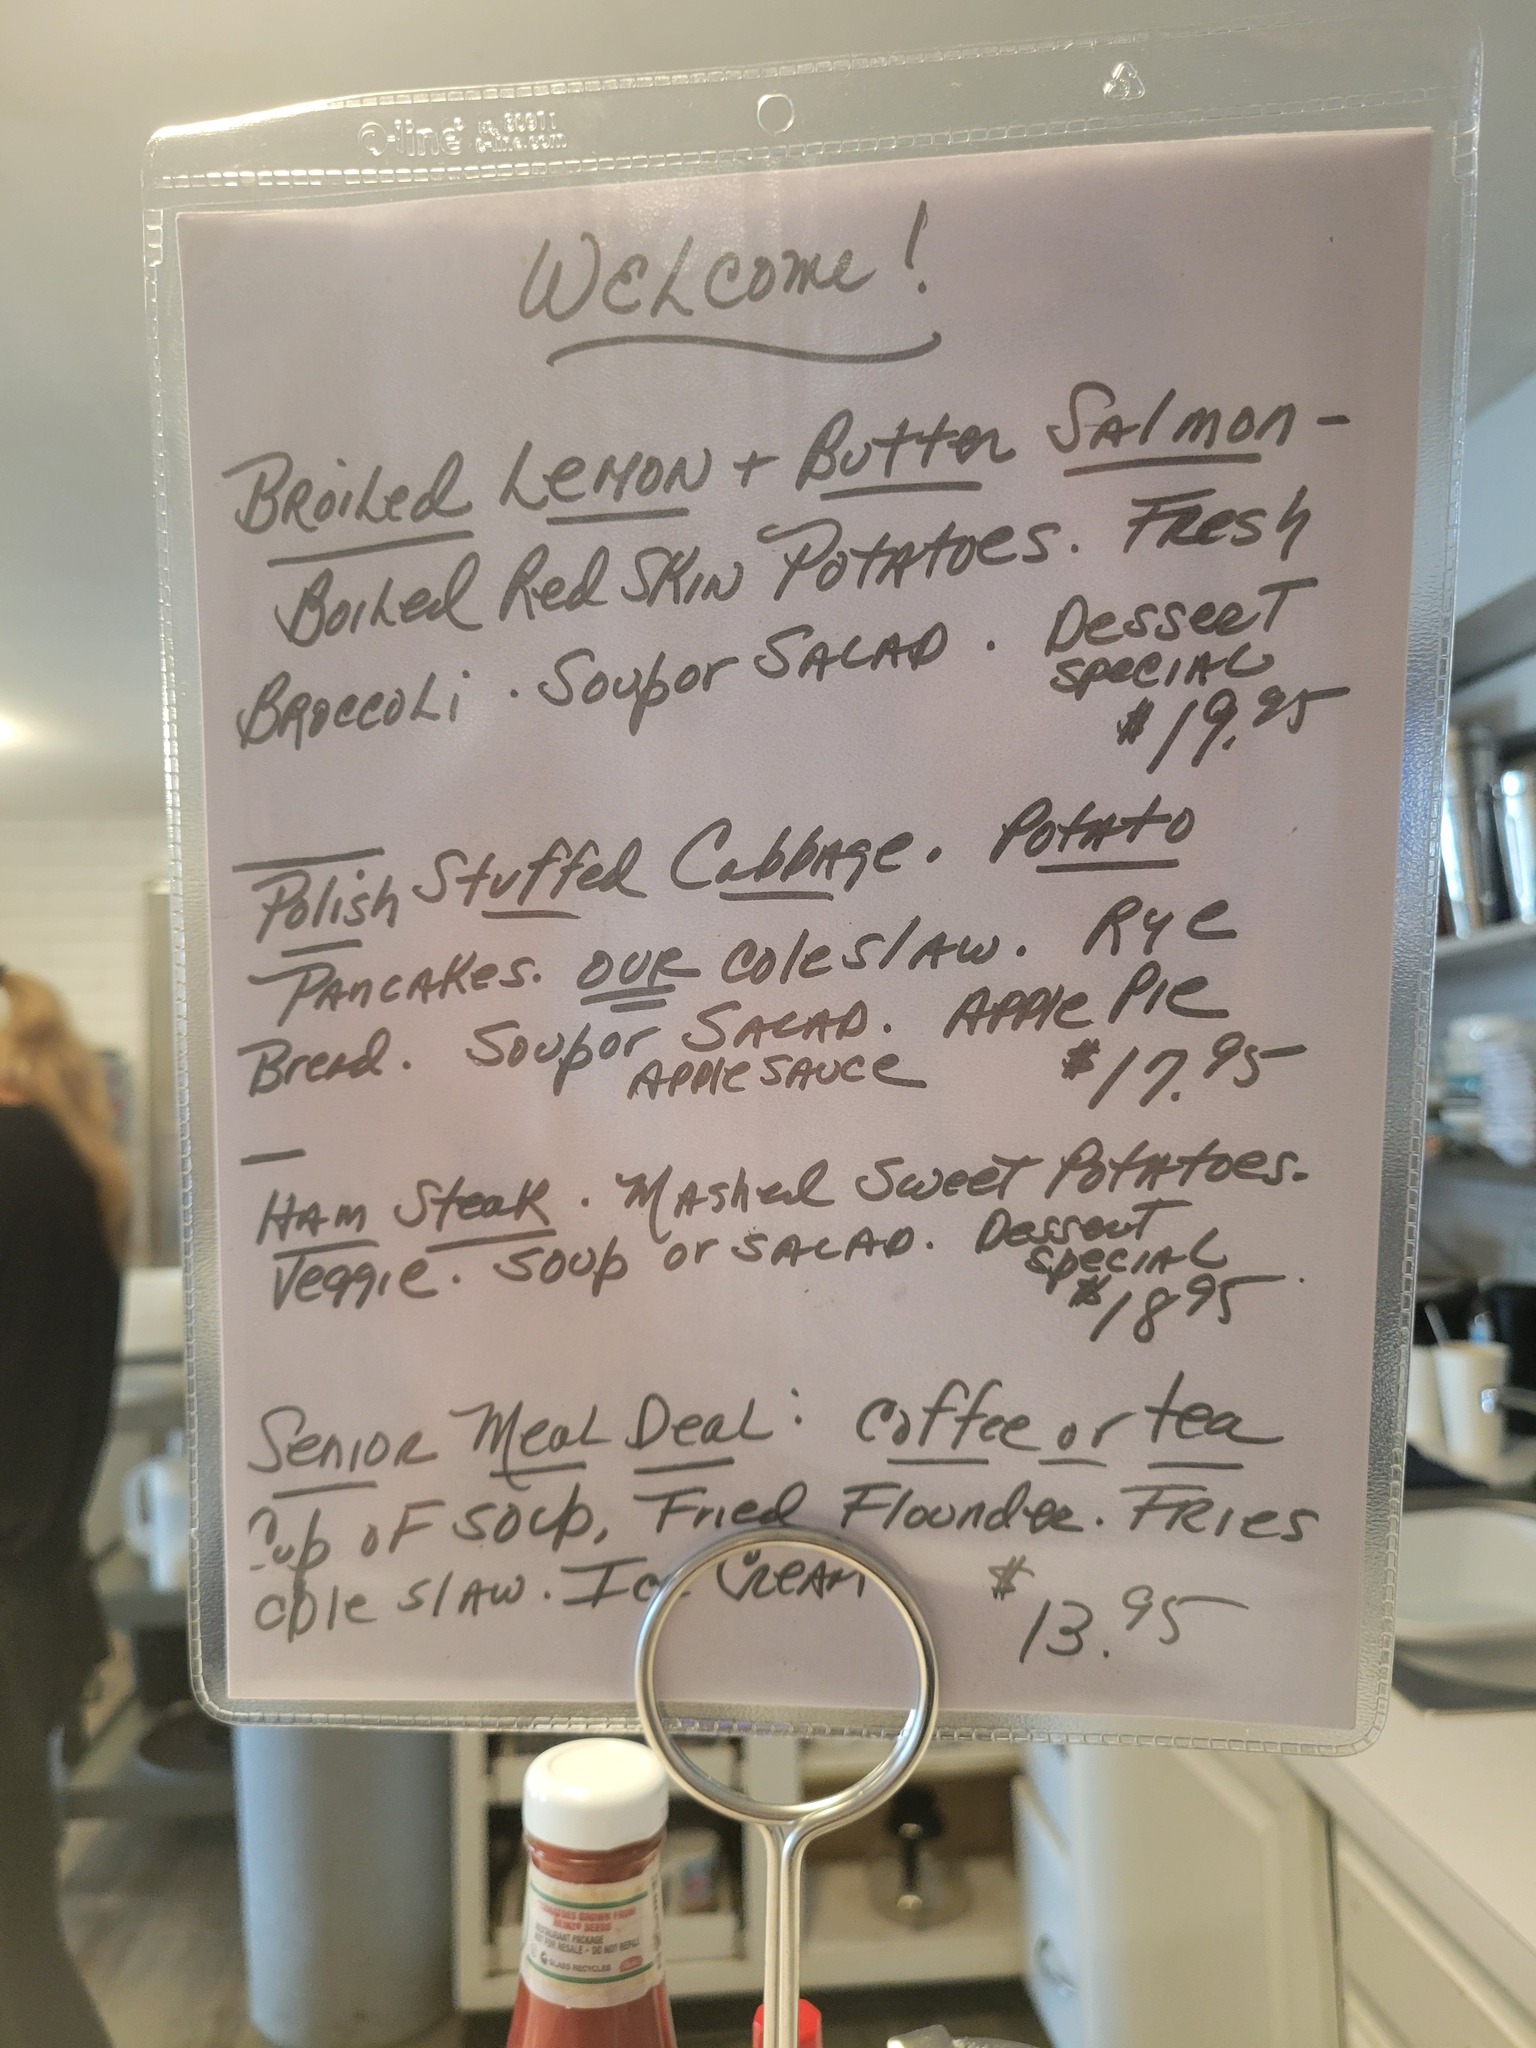 O-line No. 60911
o-line.com
WELCOME!
Broiled Lemon + Butter Salmon -
Boiled Red Skin Potatoes. Fresh
Broccoli. Soup or Salad. Dessert
Special
$19.95
Polish Stuffed Cabbage. Potato
Pancakes. OUR Coleslaw. Rye
Bread. Soup or Salad. Apple Pie
Applesauce $17.95
Ham Steak. Mashed Sweet Potatoes.
Veggie. Soup or Salad. Dessert
Special
$18.95
Senior Meal Deal: Coffee or tea
Cup of Soup, Fried Flounder. Fries
Cole slaw. Ice Cream $13.95
TOMATOES GROWN FROM
HEINZ SEEDS
RESTAURANT PACKAGE
NOT FOR RESALE - DO NOT REFILL
GLASS RECYCLES